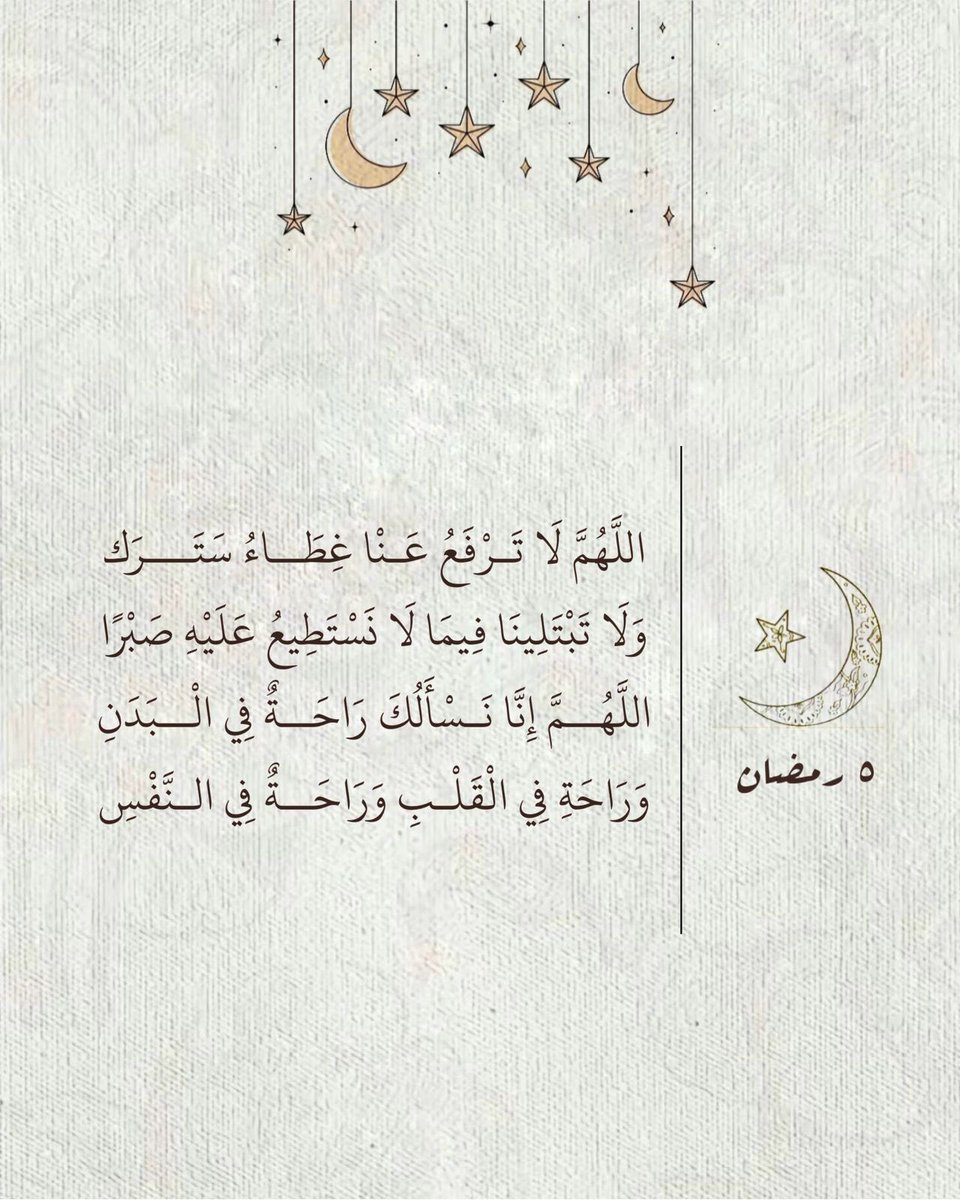 اللَّهُمَّ لَا تَرْفَعُ عَنْا غِطَاءُ سَتَرَك
وَلَا تَبْتَلِينَا فِيمَا لَا نَسْتَطِيعُ عَلَيْهِ صَبْرًا
اللَّهُمَّ إِنَّا نَسْأَلُكَ رَاحَةٌ فِي الْبَدَنِ
وَرَاحَةِ فِي الْقَلْبِ وَرَاحَةٌ فِي النَّفْسِ
٥ رمضان